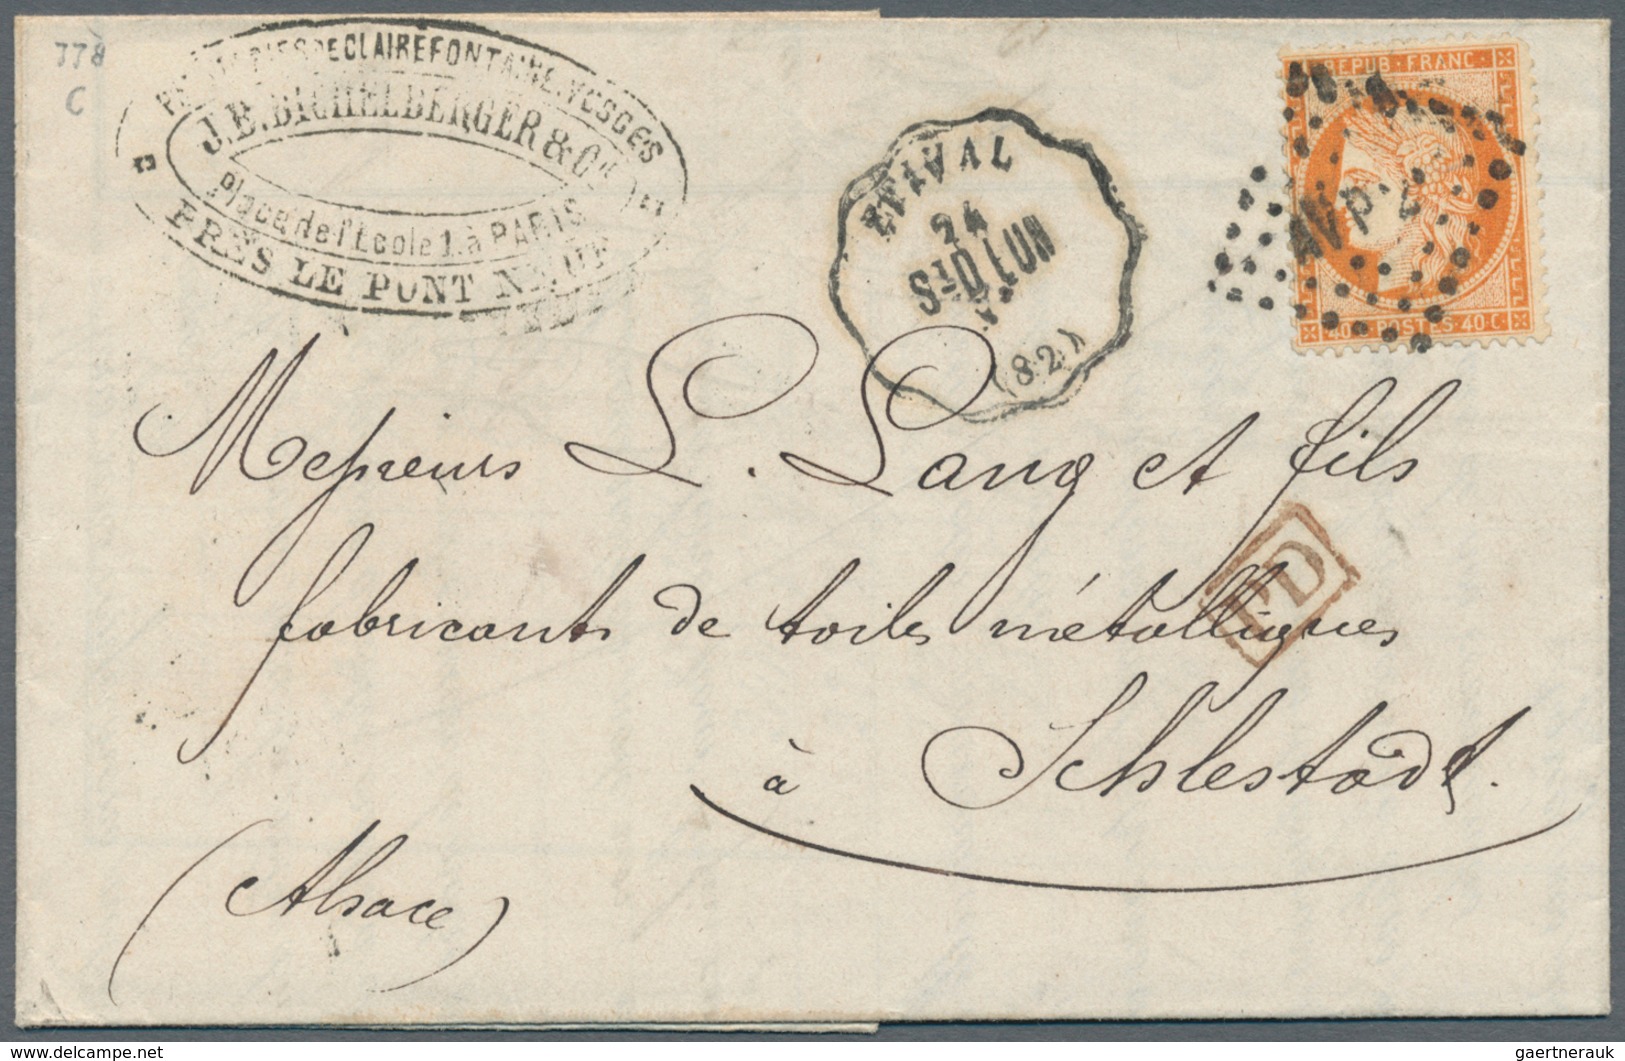 778
C
PAPETERIES DE CLAIREFONTAINE. VOSGES
J. B. BICHELBERGER & Cie
Place de l'Ecole 1. à PARIS
PRÈS LE PONT NEUF
ETIVAL
24
ST D
(82)
REPUB · FRANC ·
40 C · POSTES · 40 C
PD
Messieurs L. Lang et fils
fabricants de toiles métalliques
à Schlestadt.
(Alsace)
www.delcampe.net
gaertnerauk